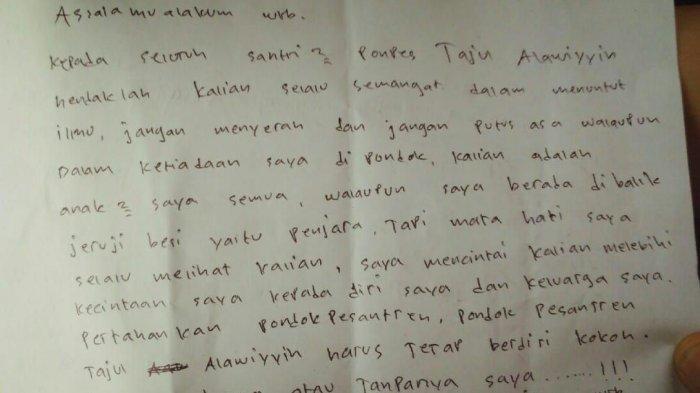 Assalamualakum wrb.
Kepada seluruh santri 2 Ponpes Taju Alawiyyin
hendaklah kalian selalu semangat dalam menuntut
ilmu, jangan menyerah dan jangan putus asa walaupun
Dalam ketiadaan saya di pondok, kalian adalah
anak 2 saya semua, walaupun saya berada dibalik
jeruji besi yaitu penjara, Tapi mata hati saya
selalu melihat kalian, saya mencintai kalian melebihi
kecintaan saya kepada diri saya dan keluarga saya.
Pertahankan pondokpesantren, pondok pesantren
Taju Alawiyyin harus Tetap berdiri kokoh.
atau Tanpanya saya.......!!!